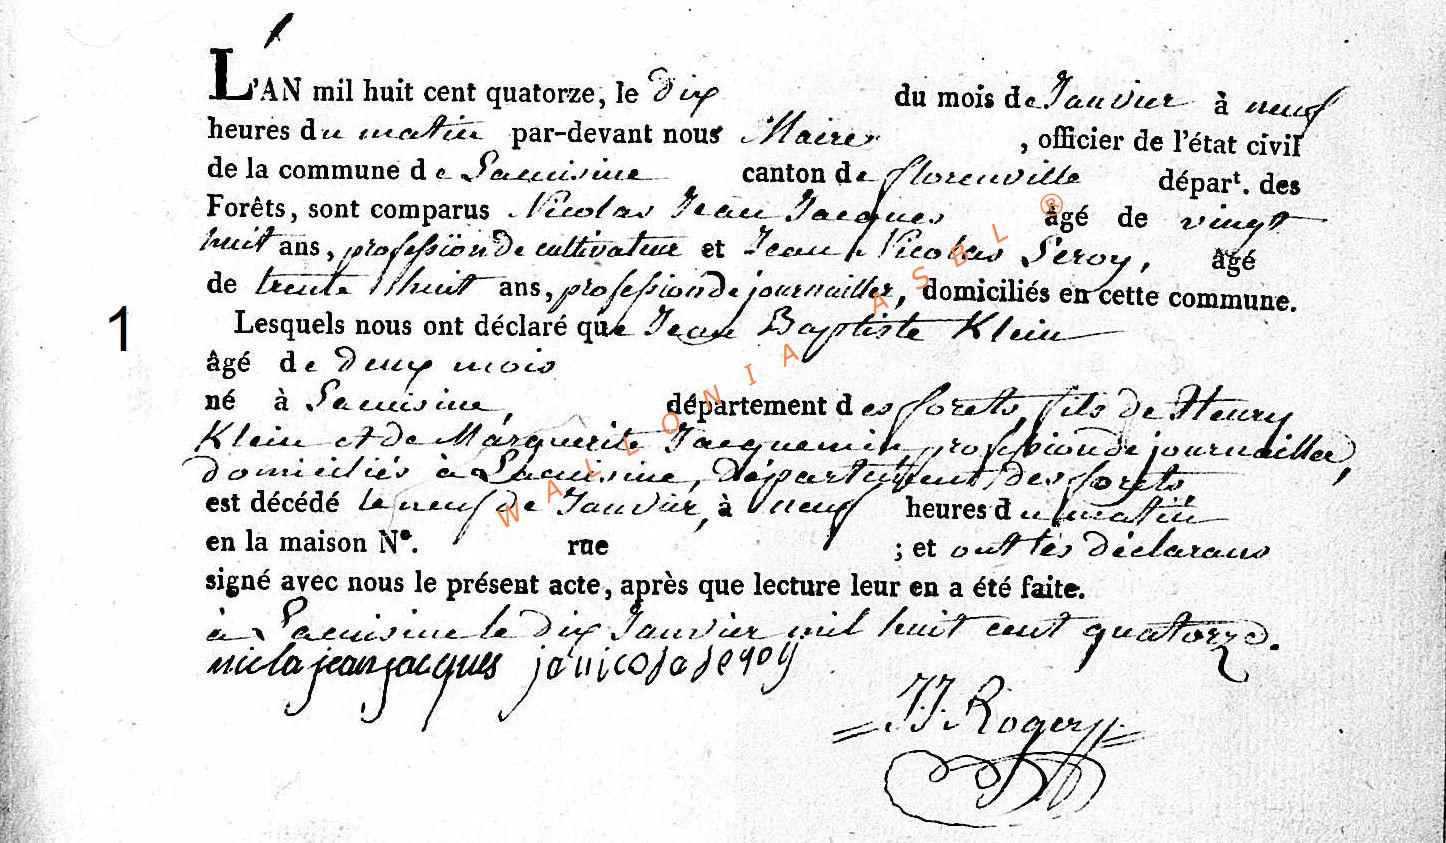 L'AN mil huit cent quatorze, le dix du mois de Janvier à neuf
heures du matin par-devant nous Maire, officier de l'état civil
de la commune de Lacuisine canton de florenville départ. des
Forêts, sont comparus Nicolas Jean Jacques âgé de vingt
huit ans, profession de cultivateur et Jean Nicolas Leroy, âgé
de trente huit ans, profession de journaillier, domiciliés en cette commune.
1
Lesquels nous ont déclaré que Jean Baptiste Klein
âgé de deux mois
né à Lacuisine, département des forets, fils de Henry
Klein et de Marguerite Jacquemin, profession de journaillier,
domiciliés à Lacuisine, département des forets
est décédé le neuf de Janvier, à neuf heures du matin
en la maison N°. rue ; et ont les déclarans
signé avec nous le présent acte, après que lecture leur en a été faite.
à Lacuisine le dix Janvier mil huit cent quatorze.
nicla jean jacques janicolaleroy
JJ Rogery
WALLONIA ASBL ®